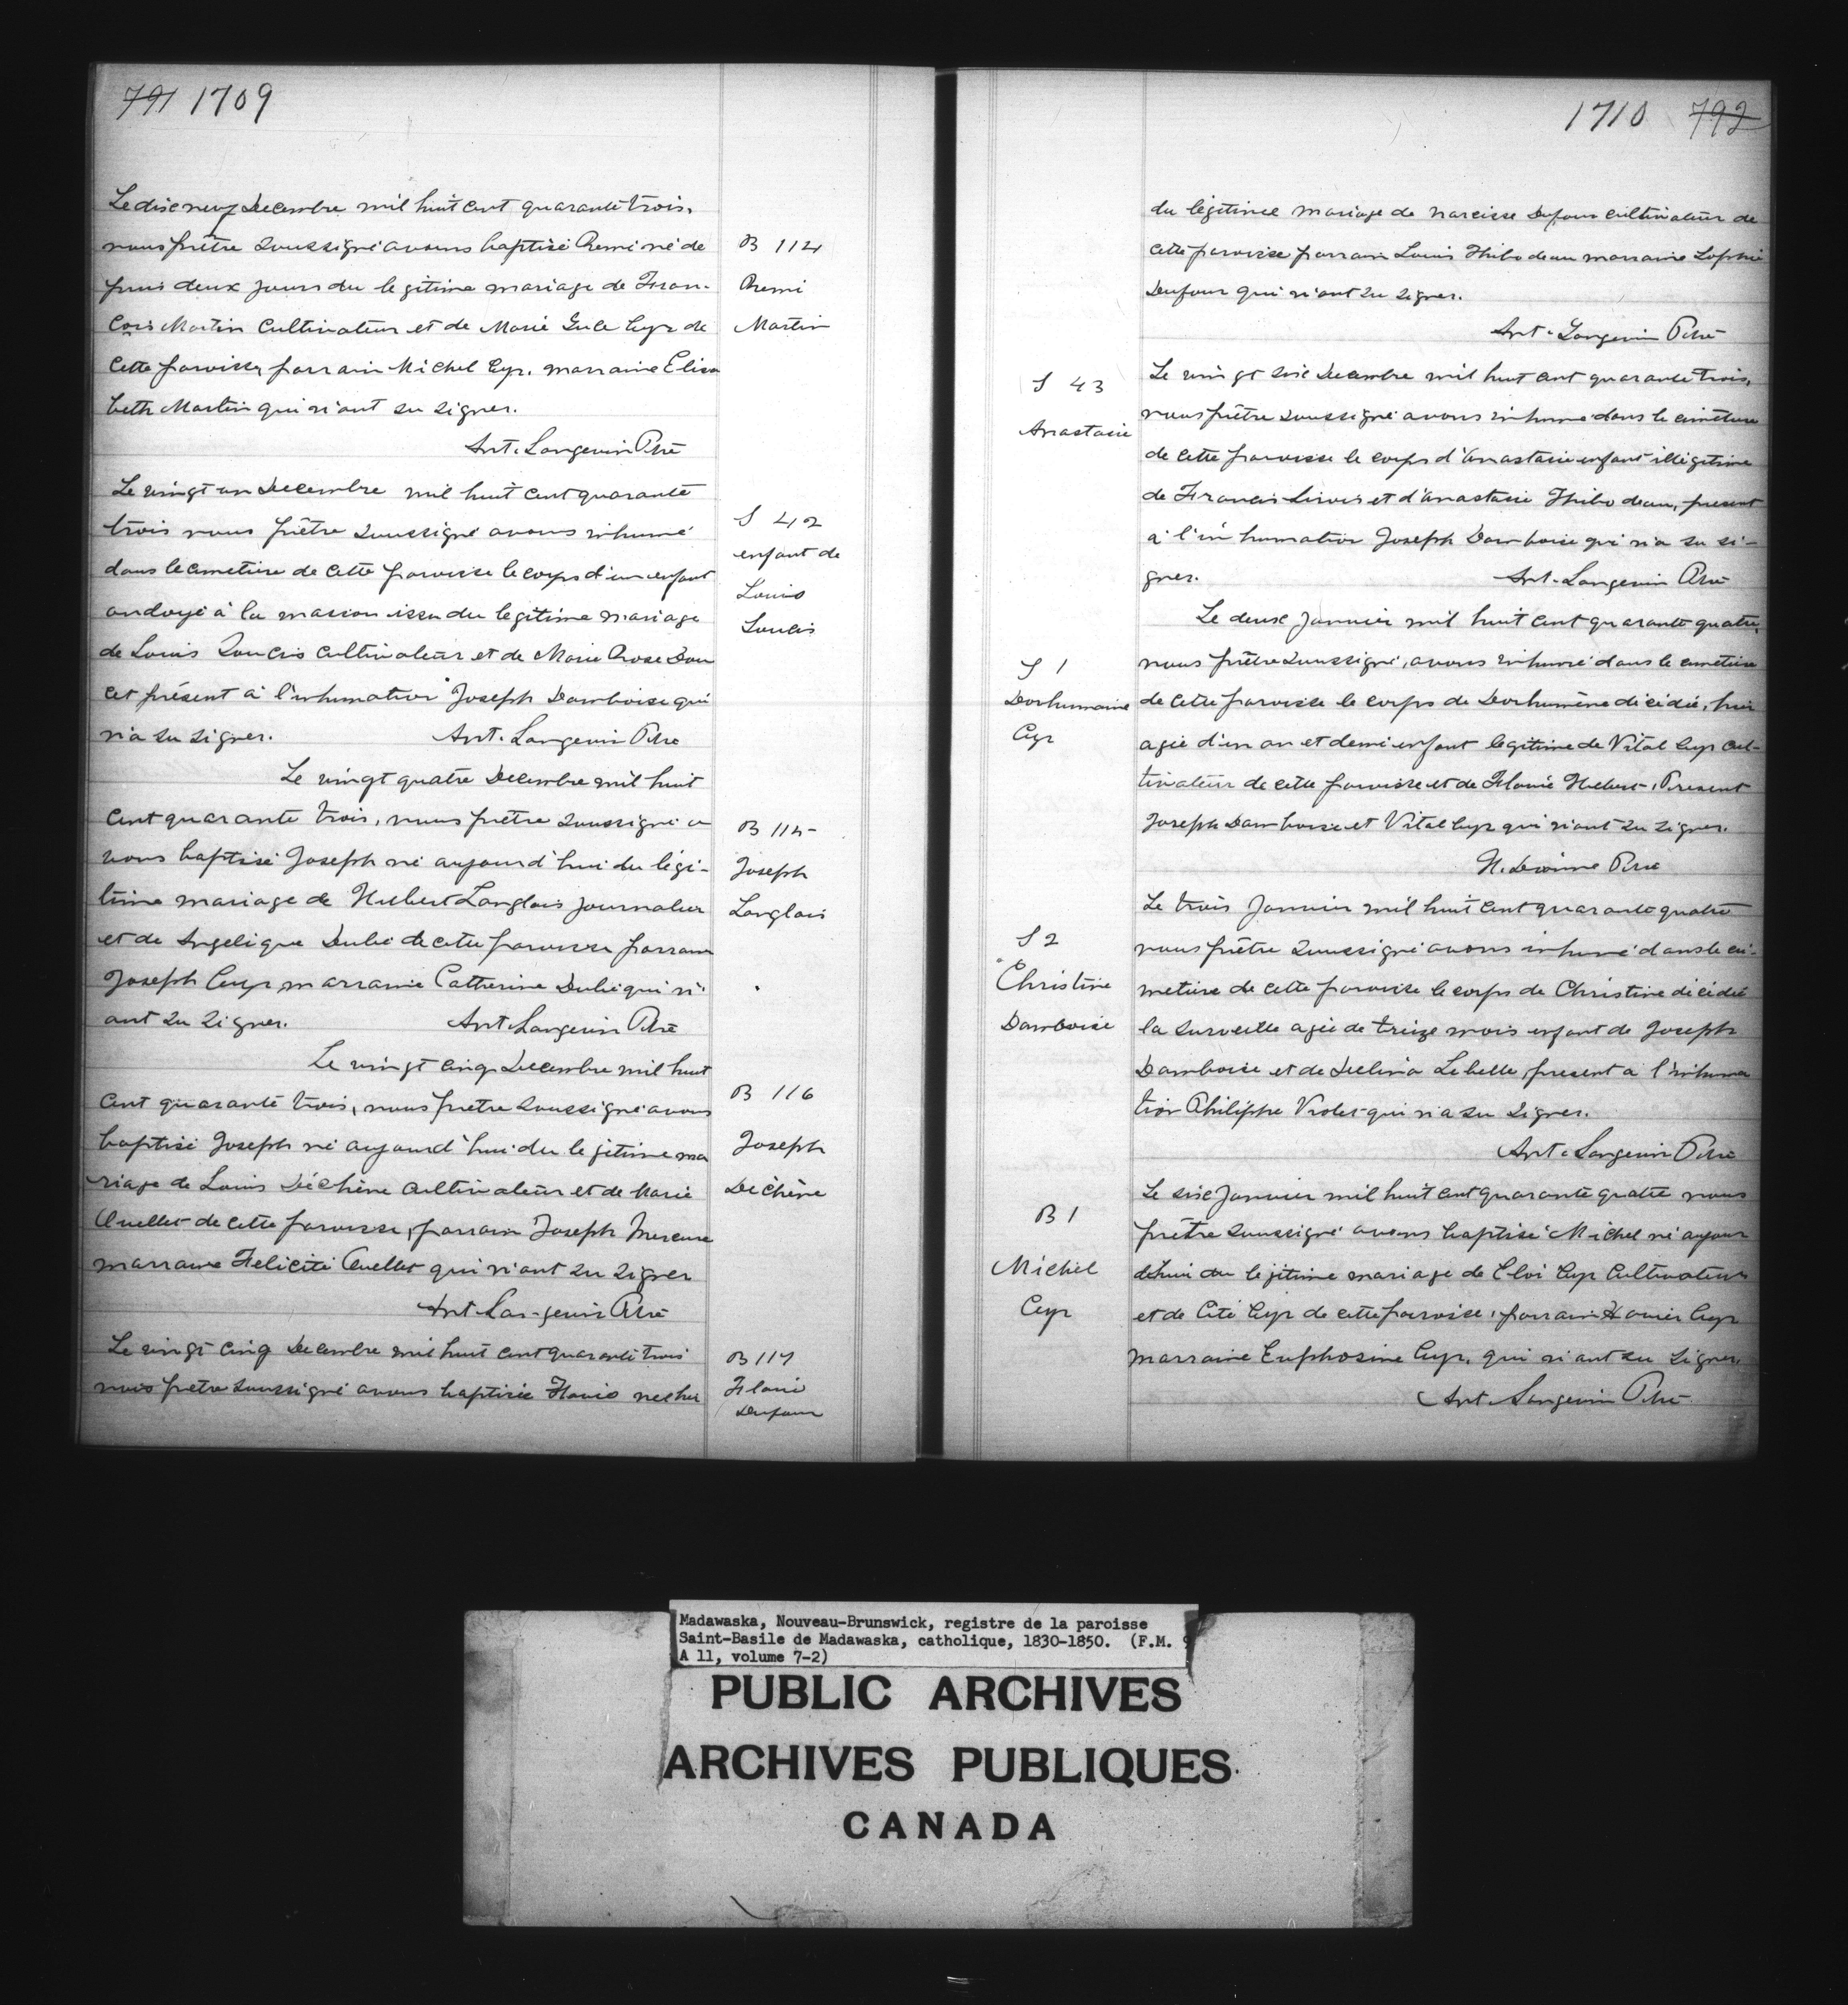 791 1709
Le dix neuf Decembre mil huit cent quarante trois,
nous prêtre soussigné avons baptisé Remi né de
puis deux jours du legitime mariage de Fran-
cois Martin Cultivateur et de Marie Cyr de
cette paroisse, parrain Michel Cyr, marraine Elisa
beth Martin qui n'ont su signer.
Ant. Langevin Ptre
B 114
Remi
Martin
Le vingt un Decembre mil huit cent quarante
trois nous prêtre soussigné avons inhumé
dans le cimetière de cette paroisse le corps d'un enfant
ondoyé à la maison issu du legitime mariage
de Louis Soucis Cultivateur et de Marie Rose Dou
cet présent à l'inhumation Joseph Damboise qui
n'a su signer. Ant. Langevin Ptre
S 42
enfant de
Louis
Soucis
Le vingt quatre Decembre mil huit
cent quarante trois, nous prêtre soussigné a
vons baptisé Joseph né aujourd'hui du légi-
time mariage de Hubert Langlois journalier
et de Angelique Dubé de cette paroisse parrain
Joseph Cyr marraine Catherine Dubé qui n'
ont su signer. Ant. Langevin Ptre
B 115
Joseph
Langlais
Le vingt cinq Decembre mil huit
cent quarante trois, nous prêtre soussigné avons
baptisé Joseph né aujourd'hui du legitime ma
riage de Louis Déchène Cultivateur et de Marie
Ouellet de cette paroisse, parrain Joseph Mercure
marraine Felicité Ouellet qui n'ont su signer
Ant. Langevin Ptre
B 116
Joseph
Dechène
Le vingt cinq Decembre mil huit cent quarante trois
nous prêtre soussigné avons baptisée Flavie née hier
B 117
Flavie
Dufour
1710 792
du légitime mariage de Narcisse Dufour cultivateur de
cette paroisse parrain Louis Thibodeau marraine Sophie
Dufour qui n'ont su signer.
Ant. Langevin Ptre
S 43
Anastasie
Le vingt six Decembre mil huit cent quarante trois,
nous prêtre soussigné avons inhumé dans le cimetière
de cette paroisse le corps d'Anastasie enfant illégitime
de Francis et d'Anastasie Thibodeau, présent
à l'inhumation Joseph Damboise qui n'a su si-
gner. Ant. Langevin Ptre
S 1
Dorhumaine
Cyr
Le deux Janvier mil huit cent quarante quatre,
nous prêtre soussigné, avons inhumé dans le cimetière
de cette paroisse le corps de Dorhumène décédée, hier
agée d'un an et demi enfant legitime de Vital Cyr cul-
tivateur de cette paroisse et de Flavie Hebert. Présent
Joseph Damboise et Vital Cyr qui n'ont su signer.
H. Dionne Ptre
S 2
Christine
Damboise
Le trois Janvier mil huit cent quarante quatre
nous prêtre soussigné avons inhumé dans le ci-
metière de cette paroisse le corps de Christine décédée
la surveille agée de treize mois enfant de Joseph
Damboise et de Delina Lebelle, présent a l'inhuma
tion Philippe Violet qui n'a su signer.
Ant. Langevin Ptre
B 1
Michel
Cyr
Le six Janvier mil huit cent quarante quatre nous
prêtre soussigné avons baptisé Michel né aujour
d'hui du legitime mariage de Eloi Cyr Cultivateur
et de Cité Cyr de cette paroisse, parrain Xavier Cyr
marraine Euphosine Cyr, qui n'ont su signer,
Ant. Langevin Ptre
Madawaska, Nouveau-Brunswick, registre de la paroisse
Saint-Basile de Madawaska, catholique, 1830-1850. (F.M. 9
A 11, volume 7-2)
PUBLIC ARCHIVES
ARCHIVES PUBLIQUES
CANADA